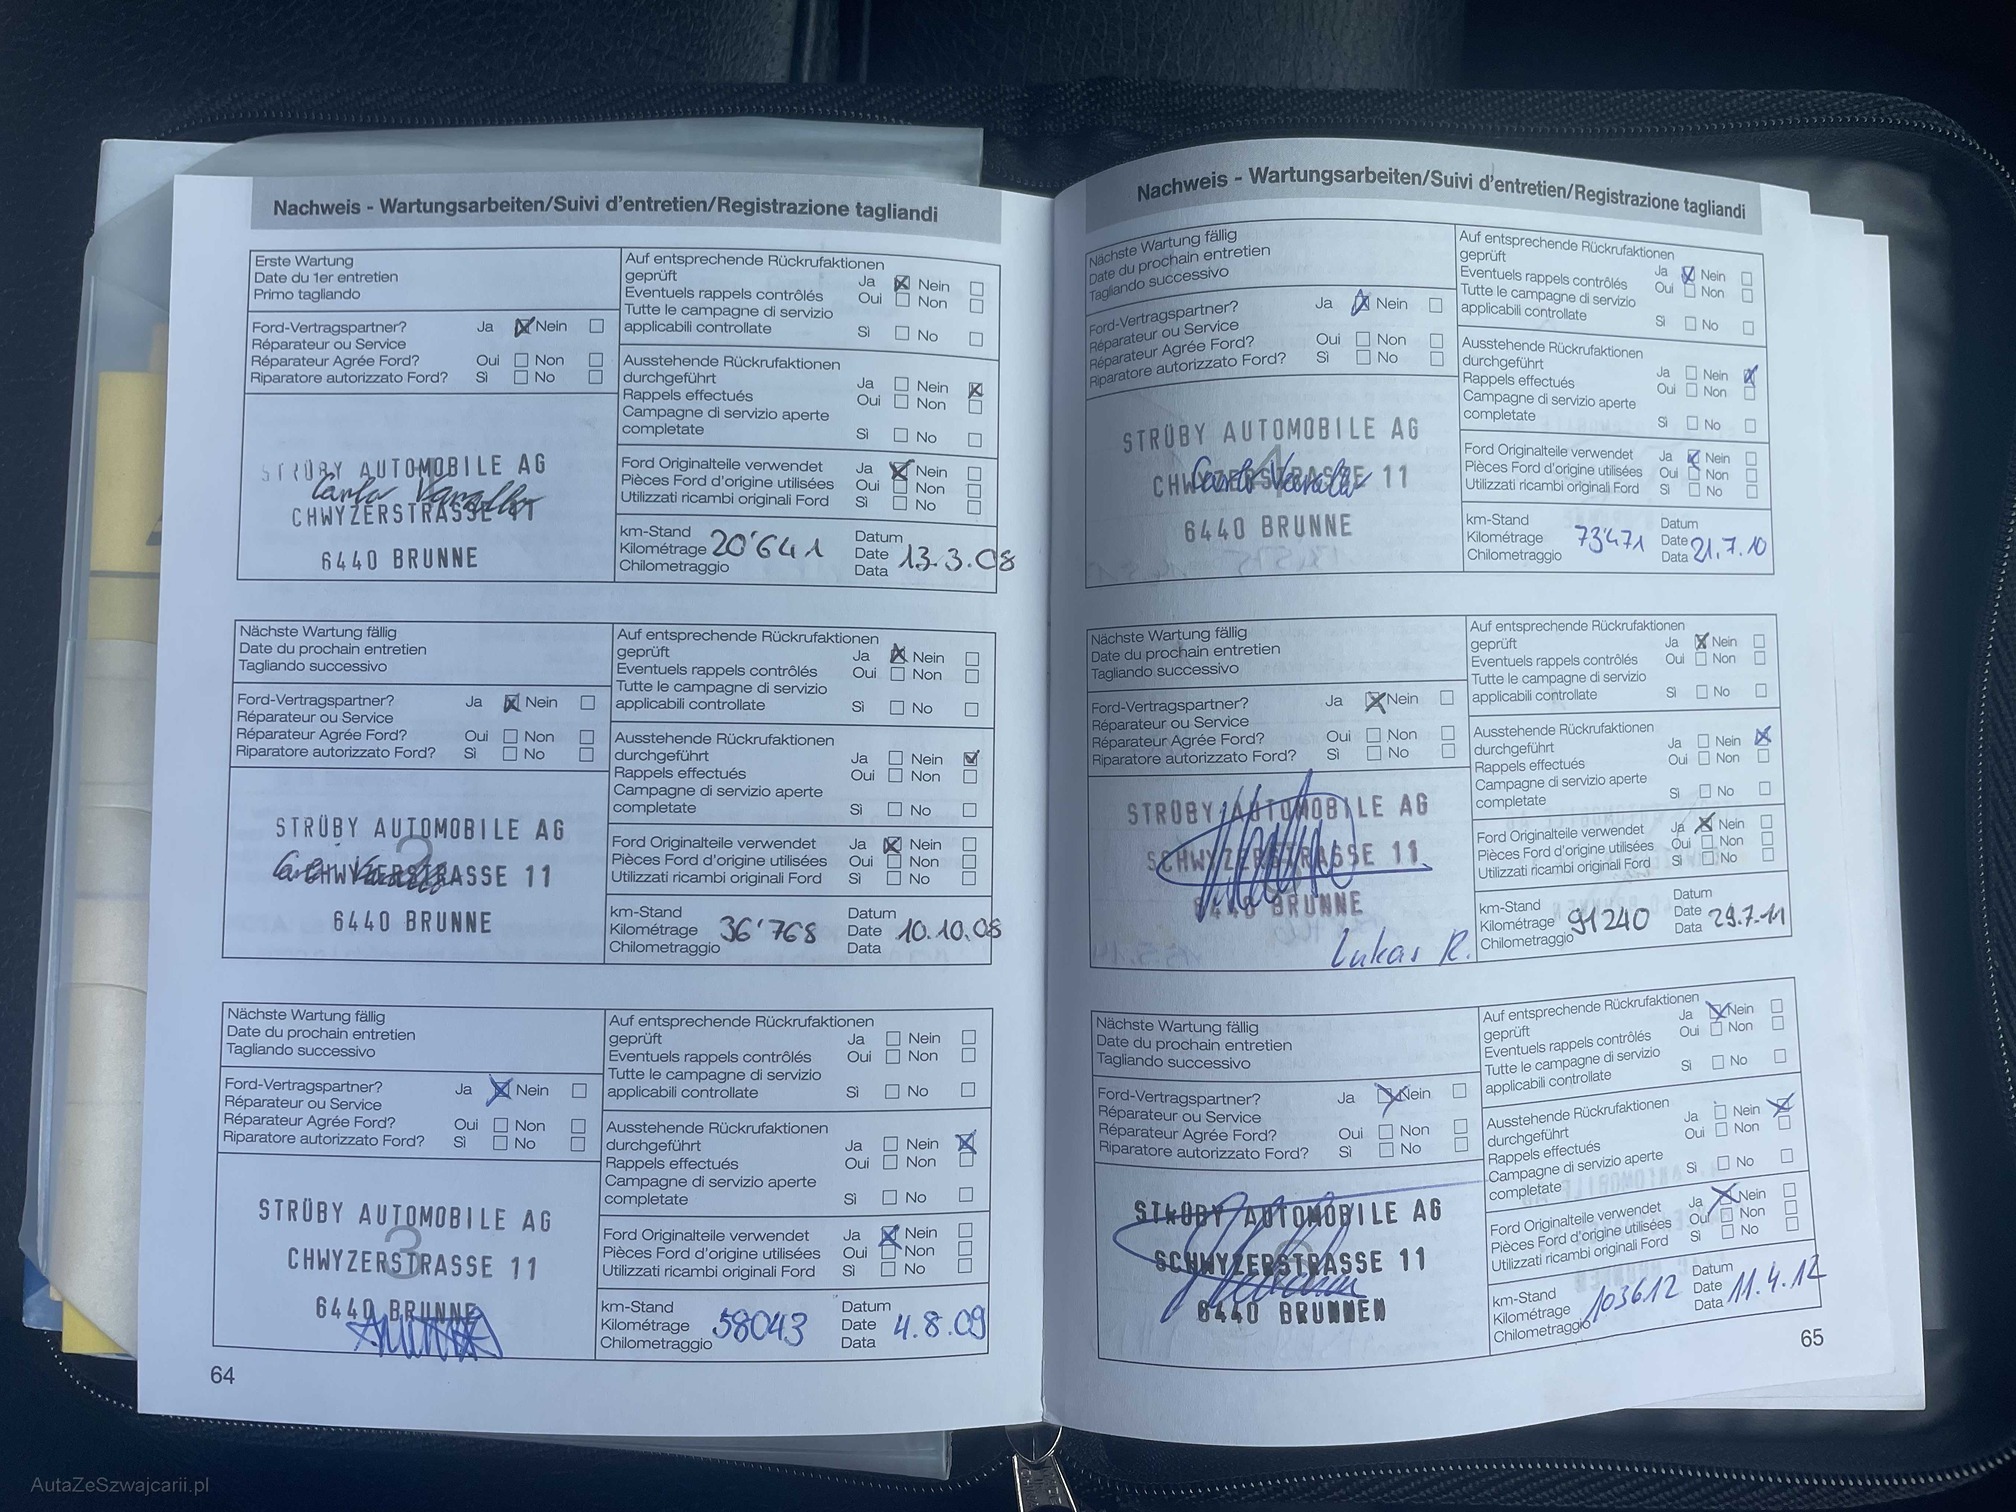 Nachweis - Wartungsarbeiten/Suivi d'entretien/Registrazione tagliandi
Erste Wartung
Date du 1er entretien
Primo tagliando
Ford-Vertragspartner? Ja Nein
Réparateur ou Service
Réparateur Agrée Ford? Oui Non
Riparatore autorizzato Ford? Sì No
STRÜBY AUTOMOBILE AG
CHWYZERSTRASSE 11
6440 BRUNNE
Auf entsprechende Rückrufaktionen
geprüft Ja Nein
Eventuels rappels contrôlés Oui Non
Tutte le campagne di servizio
applicabili controllate Sì No
Ausstehende Rückrufaktionen
durchgeführt Ja Nein
Rappels effectués Oui Non
Campagne di servizio aperte
completate Sì No
Ford Originalteile verwendet Ja Nein
Pièces Ford d'origine utilisées Oui Non
Utilizzati ricambi originali Ford Sì No
km-Stand Datum
Kilométrage 20'641 Date 13.3.08
Chilometraggio Data
Nächste Wartung fällig
Date du prochain entretien
Tagliando successivo
Ford-Vertragspartner? Ja Nein
Réparateur ou Service
Réparateur Agrée Ford? Oui Non
Riparatore autorizzato Ford? Sì No
2
STRÜBY AUTOMOBILE AG
CHWYZERSTRASSE 11
6440 BRUNNE
Auf entsprechende Rückrufaktionen
geprüft Ja Nein
Eventuels rappels contrôlés Oui Non
Tutte le campagne di servizio
applicabili controllate Sì No
Ausstehende Rückrufaktionen
durchgeführt Ja Nein
Rappels effectués Oui Non
Campagne di servizio aperte
completate Sì No
Ford Originalteile verwendet Ja Nein
Pièces Ford d'origine utilisées Oui Non
Utilizzati ricambi originali Ford Sì No
km-Stand Datum
Kilométrage 36'768 Date 10.10.08
Chilometraggio Data
Nächste Wartung fällig
Date du prochain entretien
Tagliando successivo
Ford-Vertragspartner? Ja Nein
Réparateur ou Service
Réparateur Agrée Ford? Oui Non
Riparatore autorizzato Ford? Sì No
3
STRÜBY AUTOMOBILE AG
CHWYZERSTRASSE 11
6440 BRUNNE
Auf entsprechende Rückrufaktionen
geprüft Ja Nein
Eventuels rappels contrôlés Oui Non
Tutte le campagne di servizio
applicabili controllate Sì No
Ausstehende Rückrufaktionen
durchgeführt Ja Nein
Rappels effectués Oui Non
Campagne di servizio aperte
completate Sì No
Ford Originalteile verwendet Ja Nein
Pièces Ford d'origine utilisées Oui Non
Utilizzati ricambi originali Ford Sì No
km-Stand Datum
Kilométrage 58043 Date 4.8.09
Chilometraggio Data
64
Nachweis - Wartungsarbeiten/Suivi d'entretien/Registrazione tagliandi
Nächste Wartung fällig
Date du prochain entretien
Tagliando successivo
Ford-Vertragspartner? Ja Nein
Réparateur ou Service
Réparateur Agrée Ford? Oui Non
Riparatore autorizzato Ford? Sì No
STRÜBY AUTOMOBILE AG
CHWYZERSTRASSE 11
6440 BRUNNE
Auf entsprechende Rückrufaktionen
geprüft Ja Nein
Eventuels rappels contrôlés Oui Non
Tutte le campagne di servizio
applicabili controllate Sì No
Ausstehende Rückrufaktionen
durchgeführt Ja Nein
Rappels effectués Oui Non
Campagne di servizio aperte
completate Sì No
Ford Originalteile verwendet Ja Nein
Pièces Ford d'origine utilisées Oui Non
Utilizzati ricambi originali Ford Sì No
km-Stand Datum
Kilométrage 73'471 Date
Chilometraggio Data 21.7.10
Nächste Wartung fällig
Date du prochain entretien
Tagliando successivo
Ford-Vertragspartner? Ja Nein
Réparateur ou Service
Réparateur Agrée Ford? Oui Non
Riparatore autorizzato Ford? Sì No
STRÜBY AUTOMOBILE AG
SCHWYZERSTRASSE 11
6440 BRUNNE
Lukas R.
Auf entsprechende Rückrufaktionen
geprüft Ja Nein
Eventuels rappels contrôlés Oui Non
Tutte le campagne di servizio
applicabili controllate Sì No
Ausstehende Rückrufaktionen
durchgeführt Ja Nein
Rappels effectués Oui Non
Campagne di servizio aperte
completate Sì No
Ford Originalteile verwendet Ja Nein
Pièces Ford d'origine utilisées Oui Non
Utilizzati ricambi originali Ford Sì No
km-Stand Datum
Kilométrage 91240 Date 29.7.11
Chilometraggio Data
Nächste Wartung fällig
Date du prochain entretien
Tagliando successivo
Ford-Vertragspartner? Ja Nein
Réparateur ou Service
Réparateur Agrée Ford? Oui Non
Riparatore autorizzato Ford? Sì No
STRÜBY AUTOMOBILE AG
SCHWYZERSTRASSE 11
6440 BRUNNEN
Auf entsprechende Rückrufaktionen
geprüft Ja Nein
Eventuels rappels contrôlés Oui Non
Tutte le campagne di servizio
applicabili controllate Sì No
Ausstehende Rückrufaktionen
durchgeführt Ja Nein
Rappels effectués Oui Non
Campagne di servizio aperte
completate Sì No
Ford Originalteile verwendet Ja Nein
Pièces Ford d'origine utilisées Oui Non
Utilizzati ricambi originali Ford Sì No
km-Stand Datum
Kilométrage 103612 Date 11.4.12
Chilometraggio Data
65
AutaZeSzwajcarii.pl